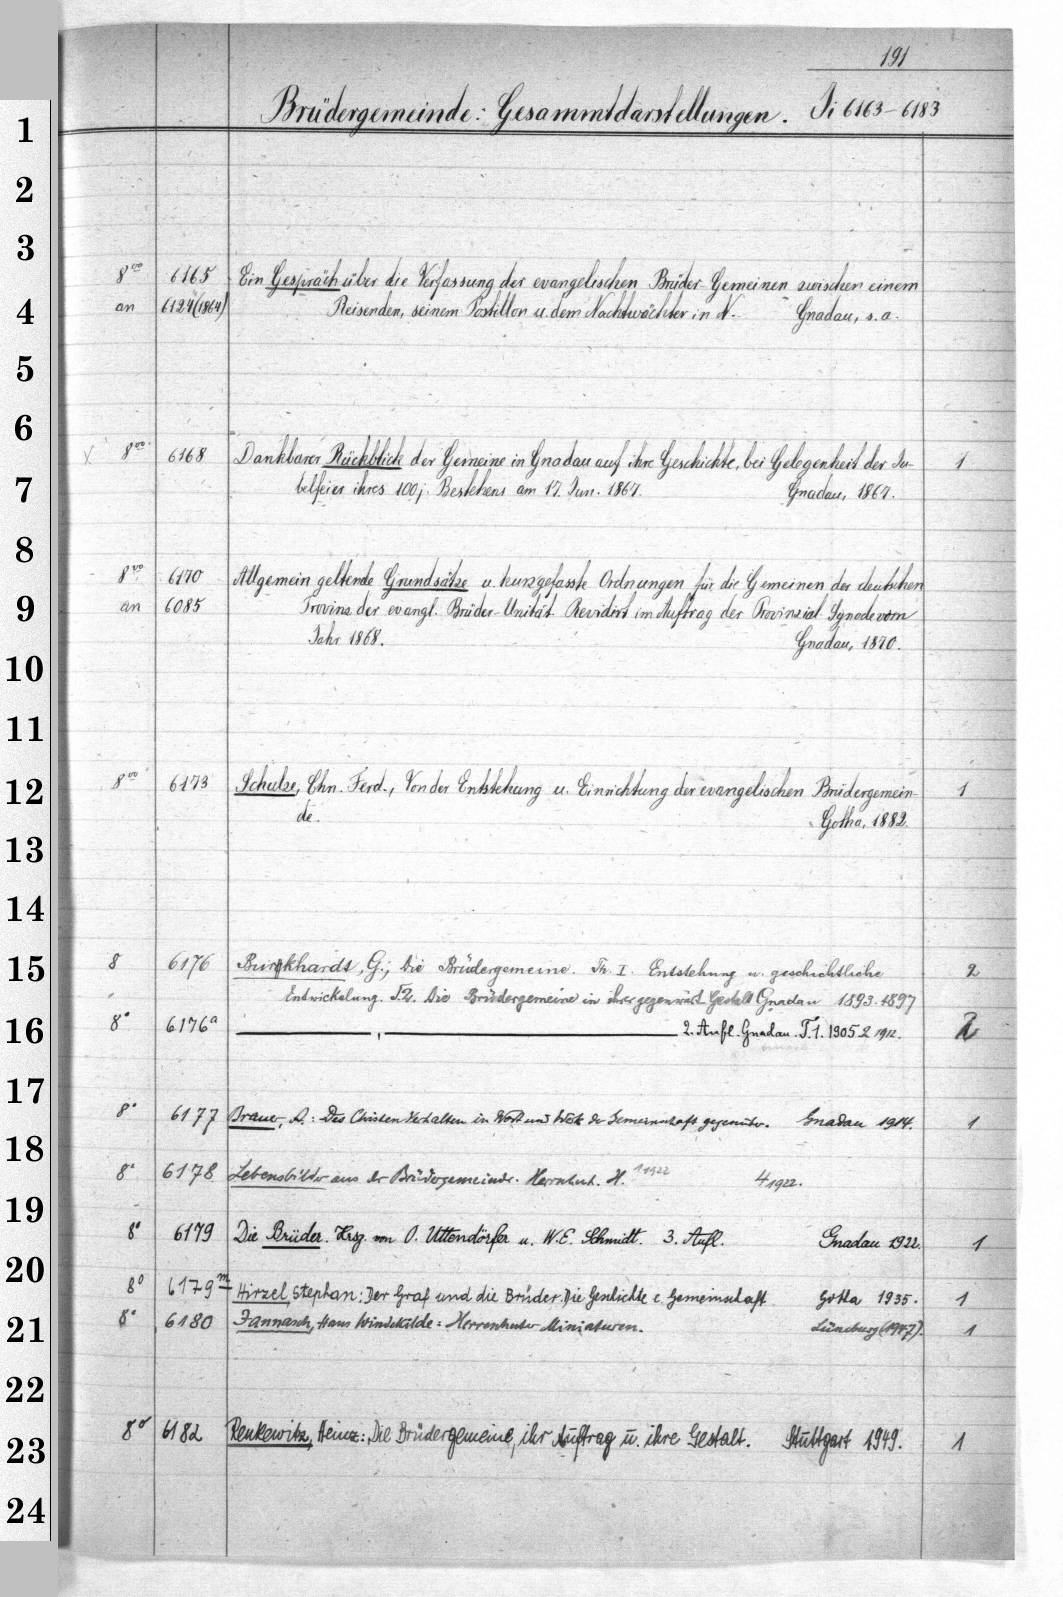 191
Brüdergemeinde: Gesammtdarstellungen. Ji 6163-6183
1
2
3
8vo 6165 Ein Gespräch über die Verfassung der evangelischen Brüder-Gemeinen zwischen einem
4 an 6124(1864) Reisenden, seinem Postillon u. dem Nachtwächter in N. Gnadau, s.a.
5
6
8vo 6168 Dankbarer Rückblick der Gemeine in Gnadau auf ihre Geschichte, bei Gelegenheit der Ju- 1
7 belfeier ihres 100j. Bestehens am 17. Jun. 1867. Gnadau, 1867.
8
8vo 6170 Allgemein geltende Grundsätze u. kurzgefasste Ordnungen für die Gemeinen der deutschen
9 an 6085 Provinz der evangl. Brüder-Unität. Revidirt im Auftrag der Provinzial-Synode vom
Jahr 1868. Gnadau, 1870.
10
11
12 8vo 6173 Schulze, Chn. Ferd., Von der Entstehung u. Einrichtung der evangelischen Brüdergemein- 1
de. Gotha, 1882.
13
14
15 8 6176 Burkhardt, G., Die Brüdergemeine. Th. I. Entstehung u. geschichtliche 2
Entwickelung. T.2. Die Brüdergemeine in ihrer gegenwärt. Gestalt Gnadau 1893-1897
16 8° 6176a , 2. Aufl. Gnadau. T.1. 1905 2 1912. 2
17
8° 6177 Brauer, A.: Des Christen Verhalten in Wort und Werk der Gemeinschaft gegenüber. Gnadau 1914. 1
18
8° 6178 Lebensbilder aus der Brüdergemeinde. Herrnhut. H. 1 1922 4 1922.
19
8° 6179 Die Brüder. Hrsg. von O. Uttendörfer u. W.E. Schmidt. 3. Aufl. Gnadau 1922. 1
20
8° 6179m Hirzel, Stephan: Der Graf und die Brüder. Die Geschichte e. Gemeinschaft Gotha 1935. 1
21 8° 6180 Jannasch, Hans Windekilde: Herrenhuter Miniaturen. Lüneburg (1947). 1
22
23 8° 6182 Renkewitz, Heinz: Die Brüdergemeine, ihr Auftrag u. ihre Gestalt. Stuttgart 1949. 1
24